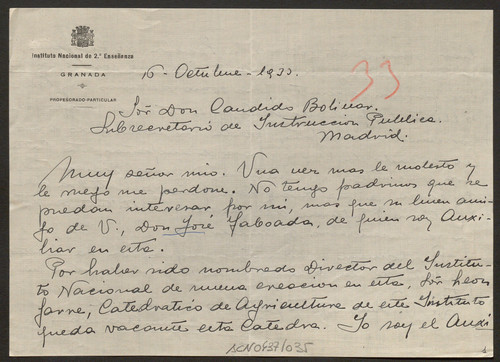 Instituto Nacional de 2.ª Enseñanza
GRANADA
PROFESORADO-PARTICULAR
16 - Octubre - 1933.
33
Sôr Don Candido Bolivar.
Subsecretario de Instruccion Publica.
Madrid.
Muy señor mio. Una vez mas le molesto y
le ruego me perdone. No tengo padrinos que se
puedan interesar por mi, mas que su buen ami-
go de V., Don José Taboada, de quien soy Auxi-
liar en esta.
Por haber sido nombrado Director del Institu-
to Nacional de nueva creacion en esta, Sôr Leon
Garre, Catedratico de Agricultura de este Instituto
queda vacante esta Catedra. Yo soy el Auxi
ACN0437/035